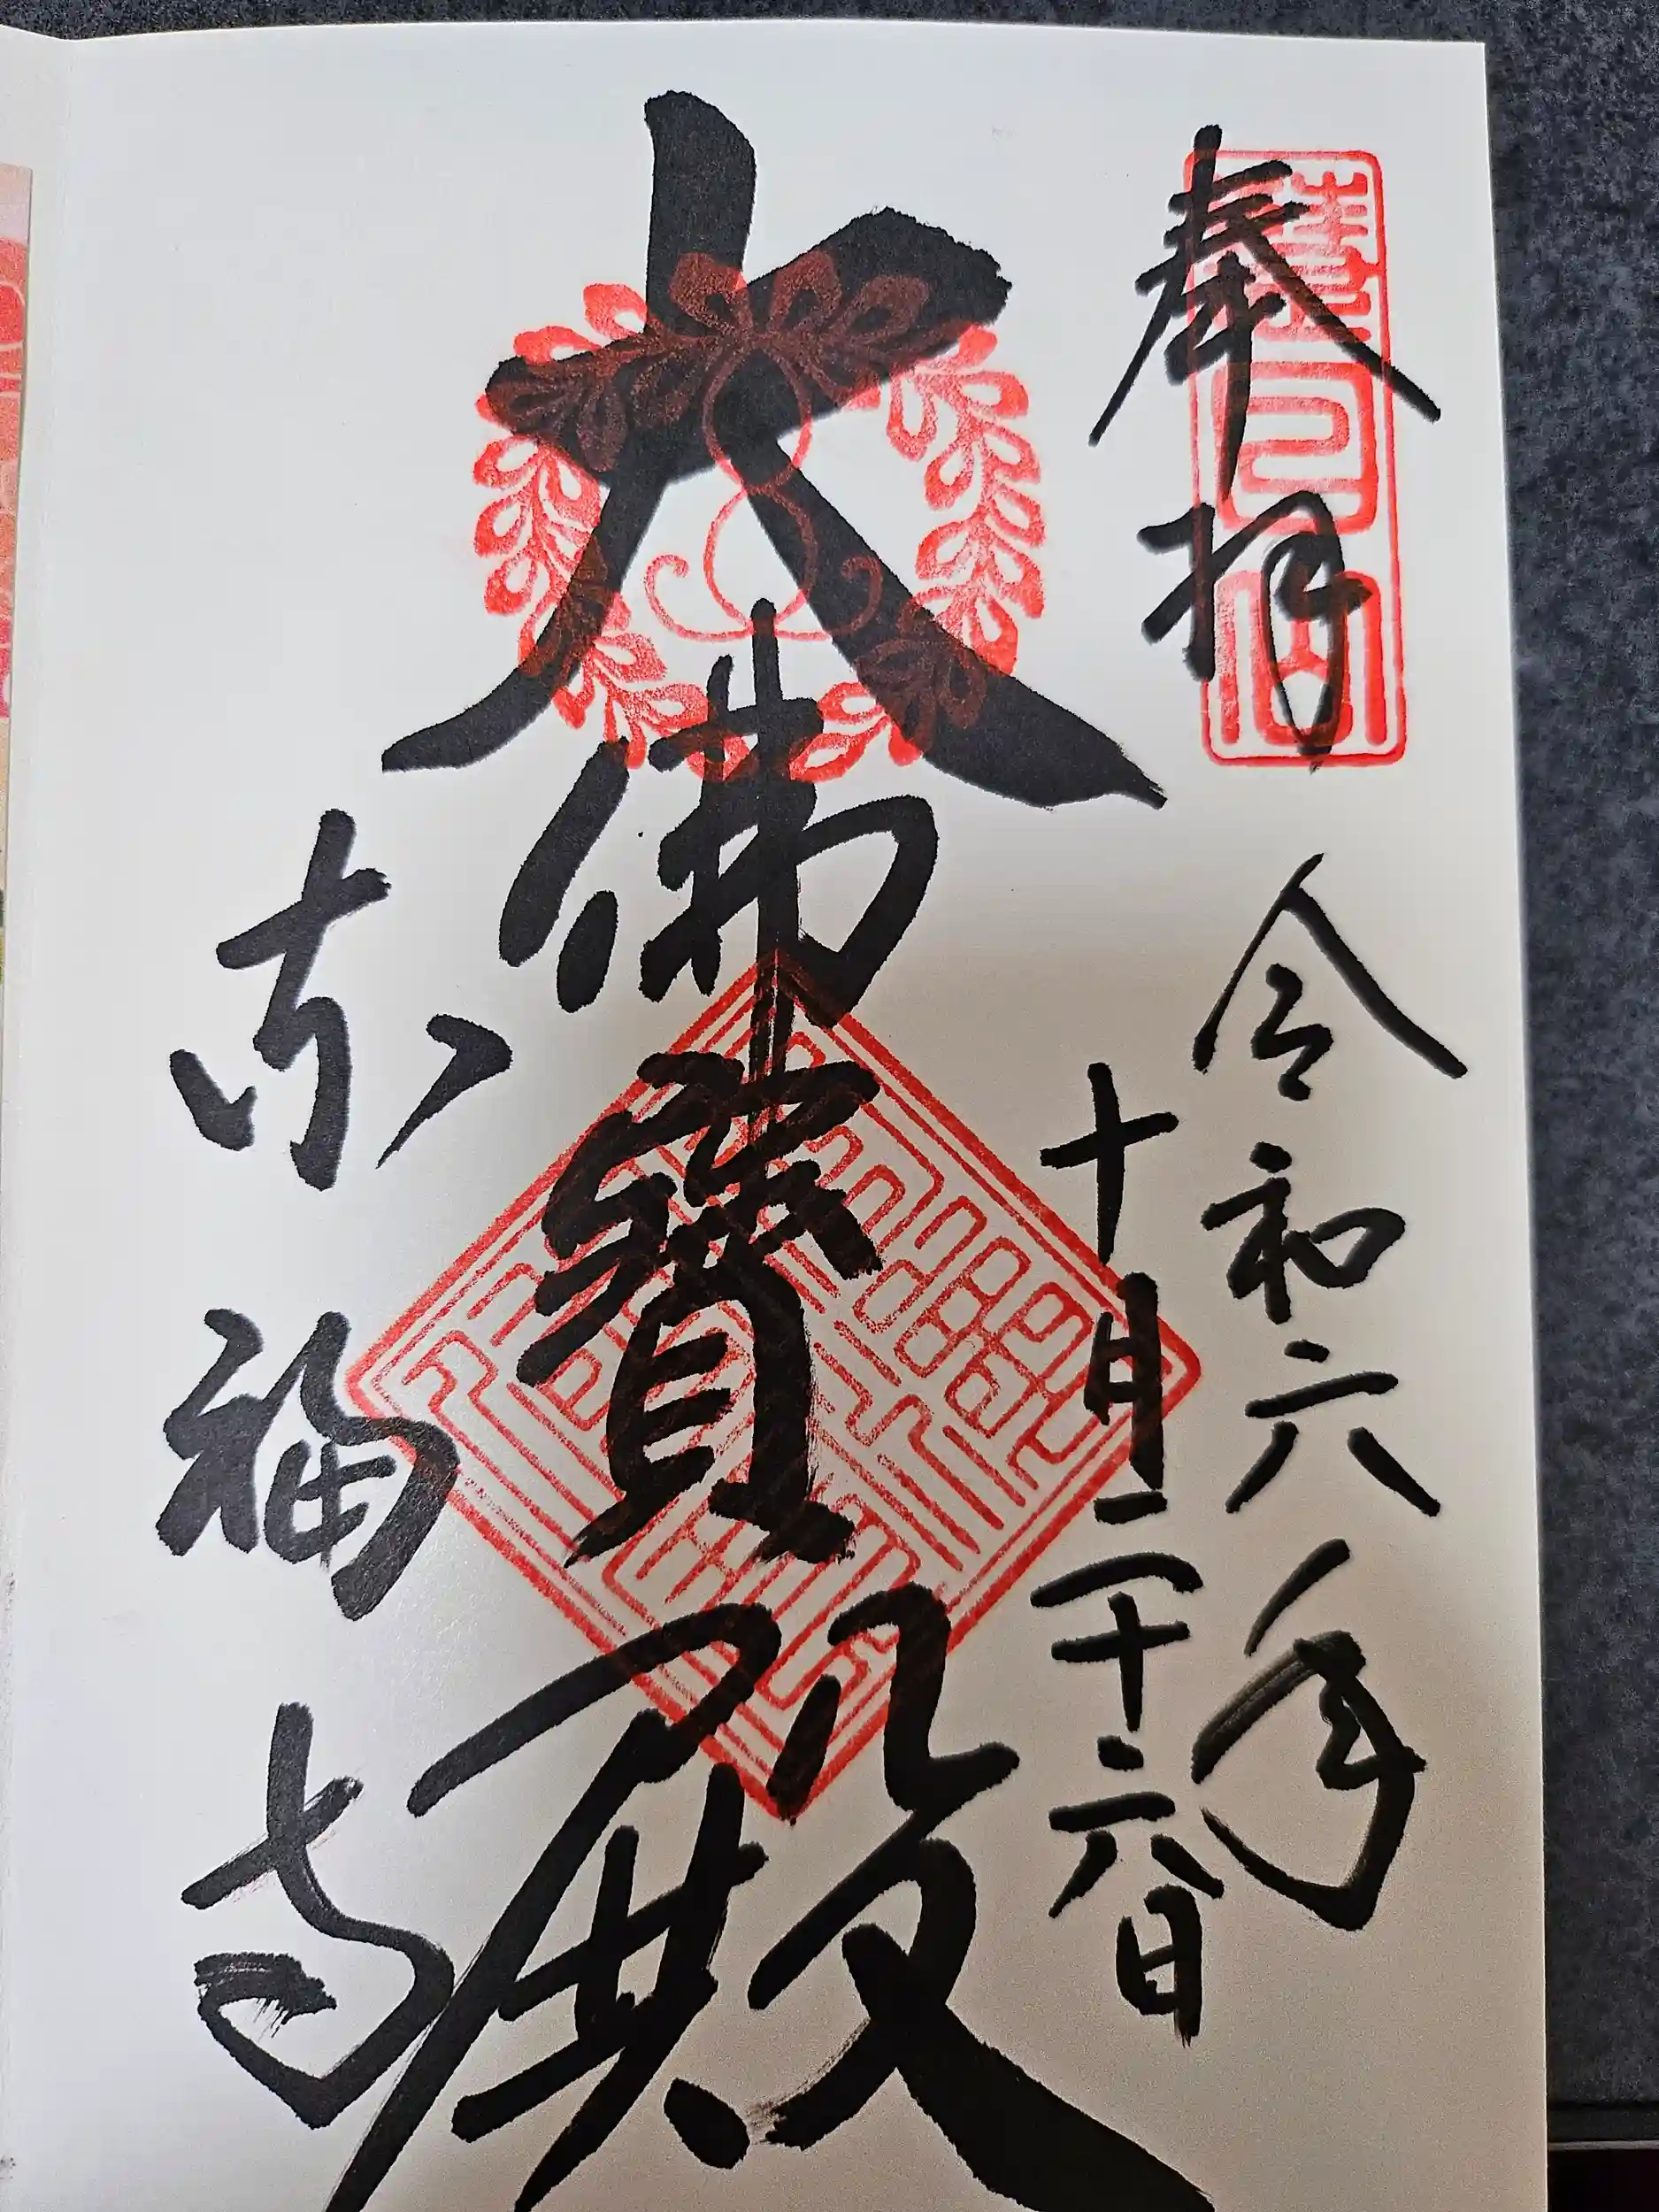 奉拝
令和六年
十月二十六日
大佛寶殿
東福寺